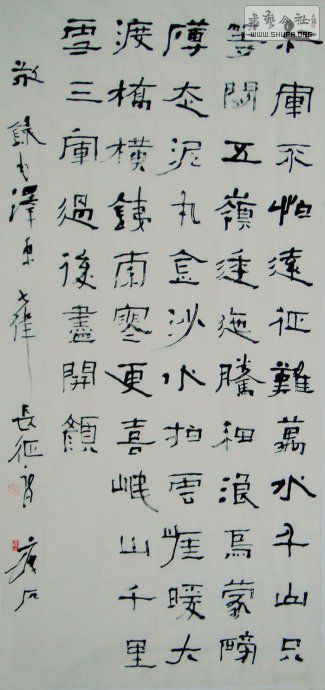 紅軍不怕遠征難萬水千山只
等閒五嶺逶迤騰細浪烏蒙磅
礴走泥丸金沙水拍雲崖暖大
渡橋橫鐵索寒更喜岷山千里
雪三軍過後盡開顏
敬錄毛澤東七律長征
書藝公社
WWW.SHUFA.ORG